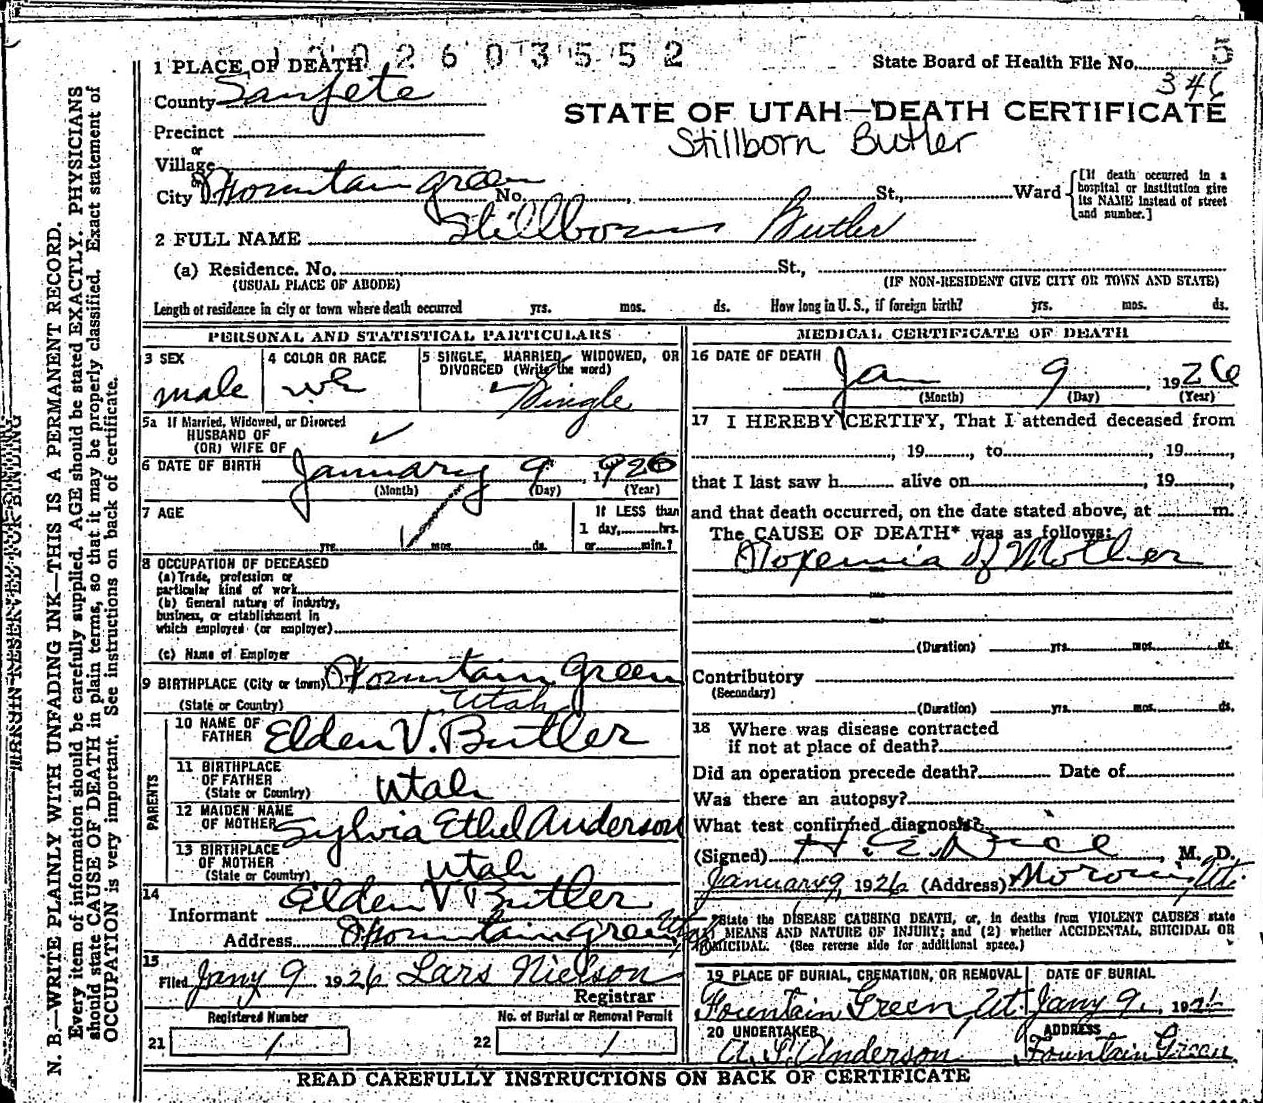 1 PLACE OF DEATH
2603552
State Board of Health File No. 5
346
County Sanpete
STATE OF UTAH—DEATH CERTIFICATE
Stillborn Butler
Precinct
or
Village
or
City Fountain green No. , St., Ward
[If death occurred in a hospital or institution give its NAME instead of street and number.]
2 FULL NAME Stillborn Butler
(a) Residence. No. , St.,
(USUAL PLACE OF ABODE) (IF NON-RESIDENT GIVE CITY OR TOWN AND STATE)
Length of residence in city or town where death occurred yrs. mos. ds. How long in U. S., if foreign birth? yrs. mos. ds.
PERSONAL AND STATISTICAL PARTICULARS
3 SEX
male
4 COLOR OR RACE
wh
5 SINGLE, MARRIED, WIDOWED, OR
DIVORCED (Write the word)
Single
5a If Married, Widowed, or Divorced
HUSBAND OF
(OR) WIFE OF
6 DATE OF BIRTH January 9, 1926
(Month) (Day) (Year)
7 AGE
yrs. mos. ds.
If LESS than
1 day, hrs.
or min.?
8 OCCUPATION OF DECEASED
(a) Trade, profession or
particular kind of work
(b) General nature of industry,
business, or establishment in
which employed (or employer)
(c) Name of Employer
9 BIRTHPLACE (City or town) Fountain Green
(State or Country) Utah
PARENTS
10 NAME OF
FATHER Elden V. Butler
11 BIRTHPLACE
OF FATHER
(State or Country) Utah
12 MAIDEN NAME
OF MOTHER Sylvia Ethel Anderson
13 BIRTHPLACE
OF MOTHER
(State or Country) Utah
14
Informant Elden V Butler
Address Fountain Green Utah
15
Filed Jany 9 1926 Lars Nielson
Registrar
Registered Number
21 1
No. of Burial or Removal Permit
22 1
MEDICAL CERTIFICATE OF DEATH
16 DATE OF DEATH
Jan 9, 1926
(Month) (Day) (Year)
17 I HEREBY CERTIFY, That I attended deceased from
, 19 , to , 19 ,
that I last saw h alive on , 19 ,
and that death occurred, on the date stated above, at m.
The CAUSE OF DEATH* was as follows:
Toxemia of Mother
(Duration) yrs. mos. ds.
Contributory
(Secondary)
(Duration) yrs. mos. ds.
18 Where was disease contracted
if not at place of death?
Did an operation precede death? Date of
Was there an autopsy?
What test confirmed diagnosis?
(Signed) H. E. , M. D.
January 9, 1926 (Address) Moroni, Ut.
*State the DISEASE CAUSING DEATH, or, in deaths from VIOLENT CAUSES state
MEANS AND NATURE OF INJURY; and (2) whether ACCIDENTAL, SUICIDAL OR
HOMICIDAL. (See reverse side for additional space.)
19 PLACE OF BURIAL, CREMATION, OR REMOVAL
Fountain Green, Ut.
DATE OF BURIAL
Jany 9, 1926
20 UNDERTAKER
Anderson
ADDRESS
Fountain Green
READ CAREFULLY INSTRUCTIONS ON BACK OF CERTIFICATE
MARGIN RESERVED FOR BINDING
N. B.—WRITE PLAINLY WITH UNFADING INK—THIS IS A PERMANENT RECORD.
Every item of information should be carefully supplied. AGE should be stated EXACTLY. PHYSICIANS
should state CAUSE OF DEATH in plain terms, so that it may be properly classified. Exact statement of
OCCUPATION is very important. See instructions on back of certificate.